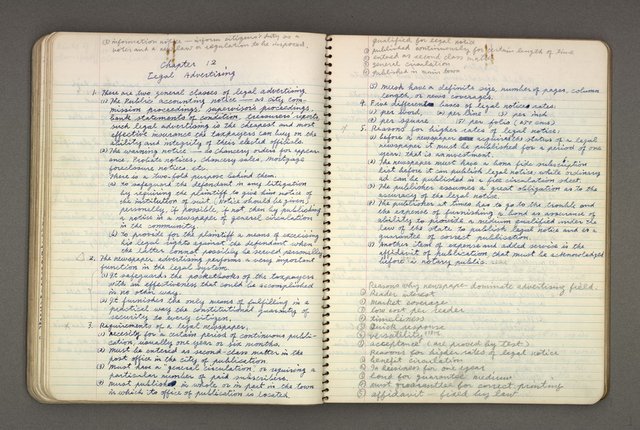 ③ Information notice — inform citizens duty as a
notes and a new law or regulation to be imposed.
Chapter 12
Legal Advertising
1. There are two general classes of legal advertising
(1) The Public accounting notice — as city com-
mission proceedings, supervisors proceedings,
Bank statements of condition, treasurers reports
such legal advertising is the cheapest and most
effective insurance the taxpayers can buy on the
ability and integrity of their elected officials.
(2) The warning notice — as chancery orders for appear-
ance, Probate notices, chancery sales, mortgage
foreclosure notices, etc.
There is a two-fold purpose behind them.
(a) to safeguard the defendant in any litigation
by requiring the plaintiff to give him notice of
the institution of suit. (Notice should be given
personally, if possible, if not then by publishing
a notice in a newspaper of general circulation
in the community.
(b) to provide for the plaintiff a means of exercising
his legal rights against the defendant when
the latter cannot possibly be served personally
2. The newspaper advertising performs a very important
function in the legal system.
(1) It safeguards the pocketbooks of the taxpayers
with an effectiveness that could be accomplished
in no other way.
(2) It furnishes the only means of fulfilling in a
practical way the constitutional guaranty of
security to every citizen.
3. Requirements of a legal newspaper.
(1) Necessity for a certain period of continuous publi-
cation, usually one year or six months.
(2) Must be entered as second-class matter in the
post office in the city of publication.
(3) Must have a "general circulation," or requiring a
particular number of paid subscribers.
(4) Must published in whole or in part in the town
in which its office of publication is located.
qualified for legal notice
① published continuously for certain length of time
② entered as second class matter
③ general circulation
④ published in main town
(5) Mush have a definite size, number of pages, column
length, or news coverages.
4. Five different bases of legal notice rates:
(1) per word; (2) per line (3) per inch
(4) per square (5) per folio (100 ems)
5. Reasons for higher rates of legal notice:
(1) before a newspaper acquires status of a legal
newspaper it must be published for a period of one
year; that is an investment.
(2) The newspaper must have a bona fide subscription
list before it can publish legal notice, while ordinary
ad can be published in a free circulation sheet.
(3) The publisher assumes a great obligation as to the
accuracy of the legal notice.
(4) The publisher at times has to go to the trouble and
the expense of furnishing a bond as assurance of
ability to provide a medium qualified under the
law of the state to publish legal notice and as a
guarantee of correct publication.
(5) Another item of expense and added service is the
affidavit of publication, that must be acknowledged
before a notary public.
Reasons why newspaper dominate advertising field.
① Reader interest
② market coverage
③ low cost per reader
④ timeliness
⑤ Quick response
⑥ versatility
⑦ acceptance (are proved by test)
Reasons for higher rates of legal notice
① benefit circulation
② In business for one year
③ bond for guarantee medium
④ must guarantee for correct printing
⑤ affidavit — fixed by law